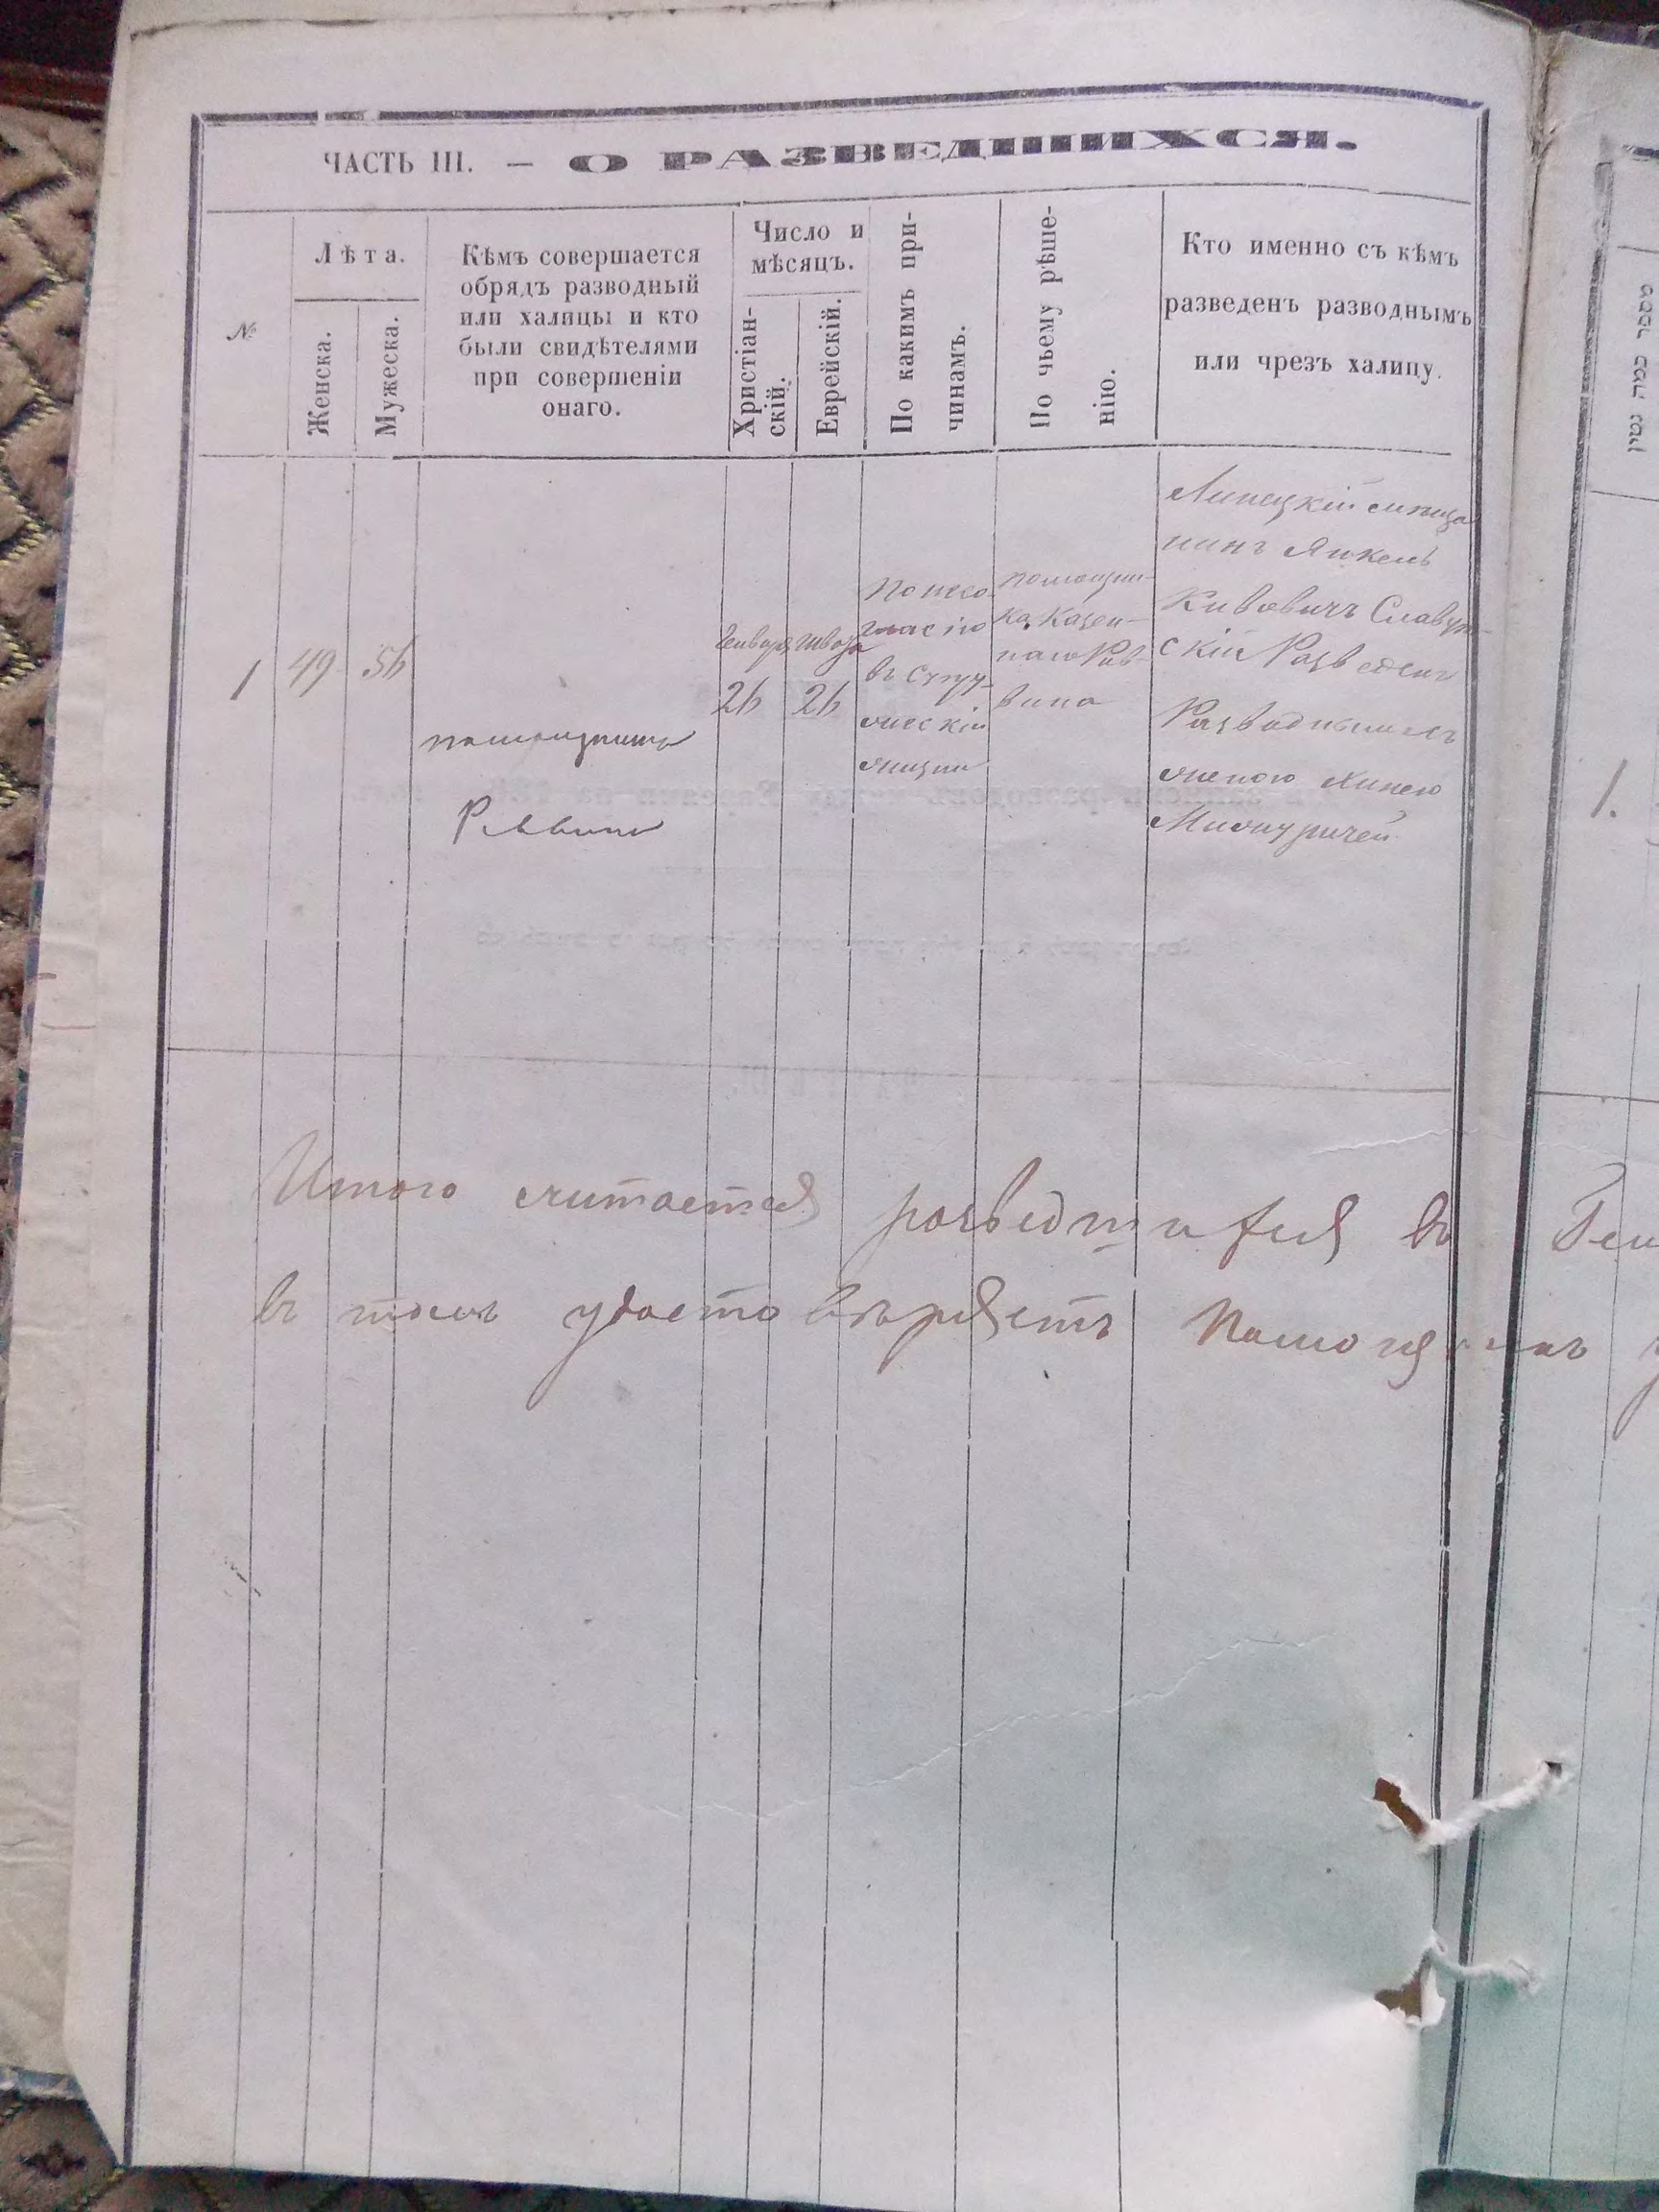 ЧАСТЬ III. — О РАЗВЕДШИХСЯ.
№
Лѣта.
Женска.
Мужеска.
Кѣмъ совершается
обрядъ разводный
или халицы и кто
были свидѣтелями
при совершеніи
онаго.
Число и
мѣсяцъ.
Христіан-
скій.
Еврейскій.
По какимъ при-
чинамъ.
По чьему рѣше-
нію.
Кто именно съ кѣмъ
разведенъ разводнымъ
или чрезъ халицу.
1
49
56
Раввина
Генваря
26
26
По несо-
гласію
въ супру-
жеский
жизни
помощни-
ка казен-
наго Рав-
вина
Липецкій мѣща
нинъ Янкель
Кивовичъ Славут-
скій Разведенъ
Разводнымъ съ
женою Хинею
1.
Итого считается разведшихся въ Ген
въ томъ удостовѣряетъ Помощникъ